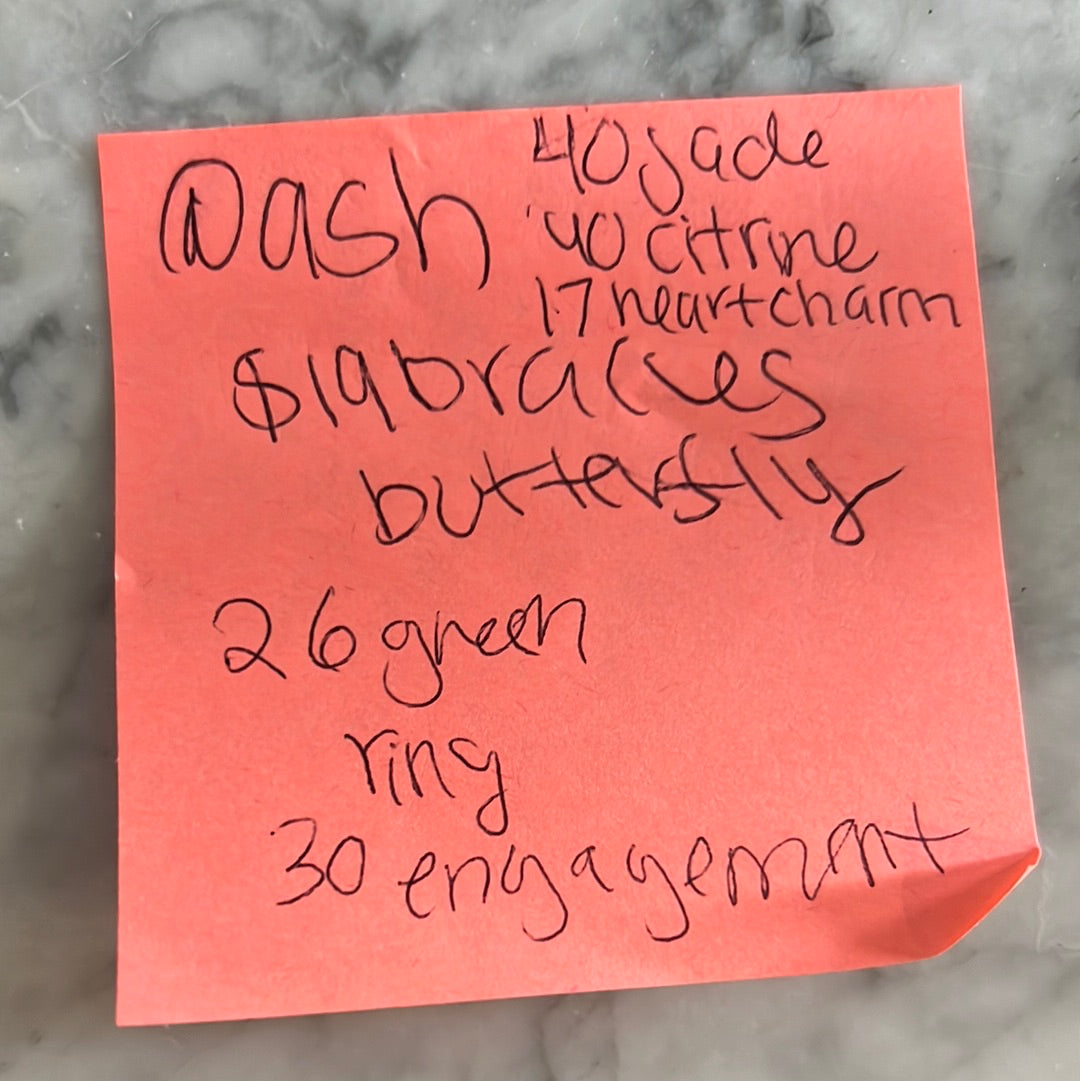 @ash
40 jade
40 citrine
17 heart charm
$19 braclves
butterfly
26 green
ring
30 engagement